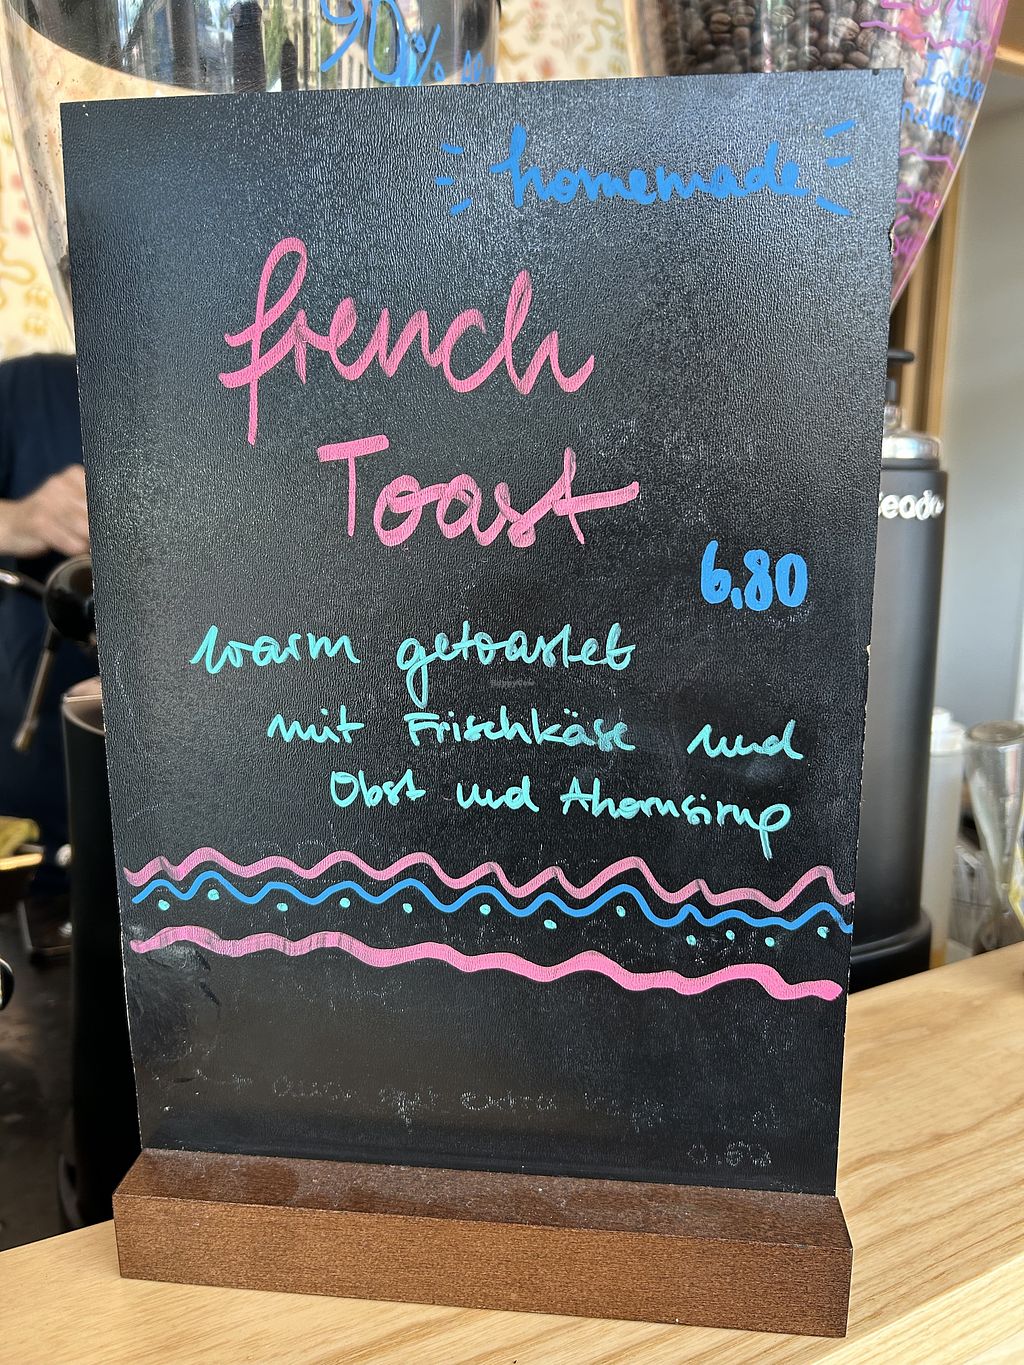 90%
homemade
french
Toast
6,80
warm getoastet
mit Frischkäse und
Obst und Ahornsirup
extra